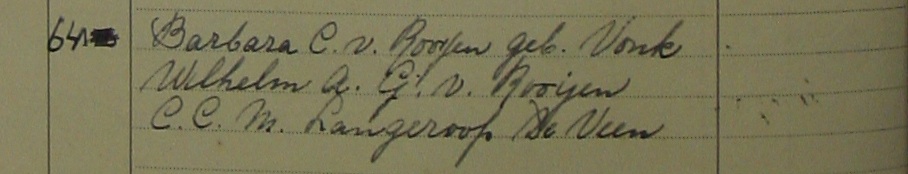 641 Barbara C. v. Rooyen geb. Vonk
Wilhelm A. G. v. Rooijen
C. C. M. Langeroop De Veen